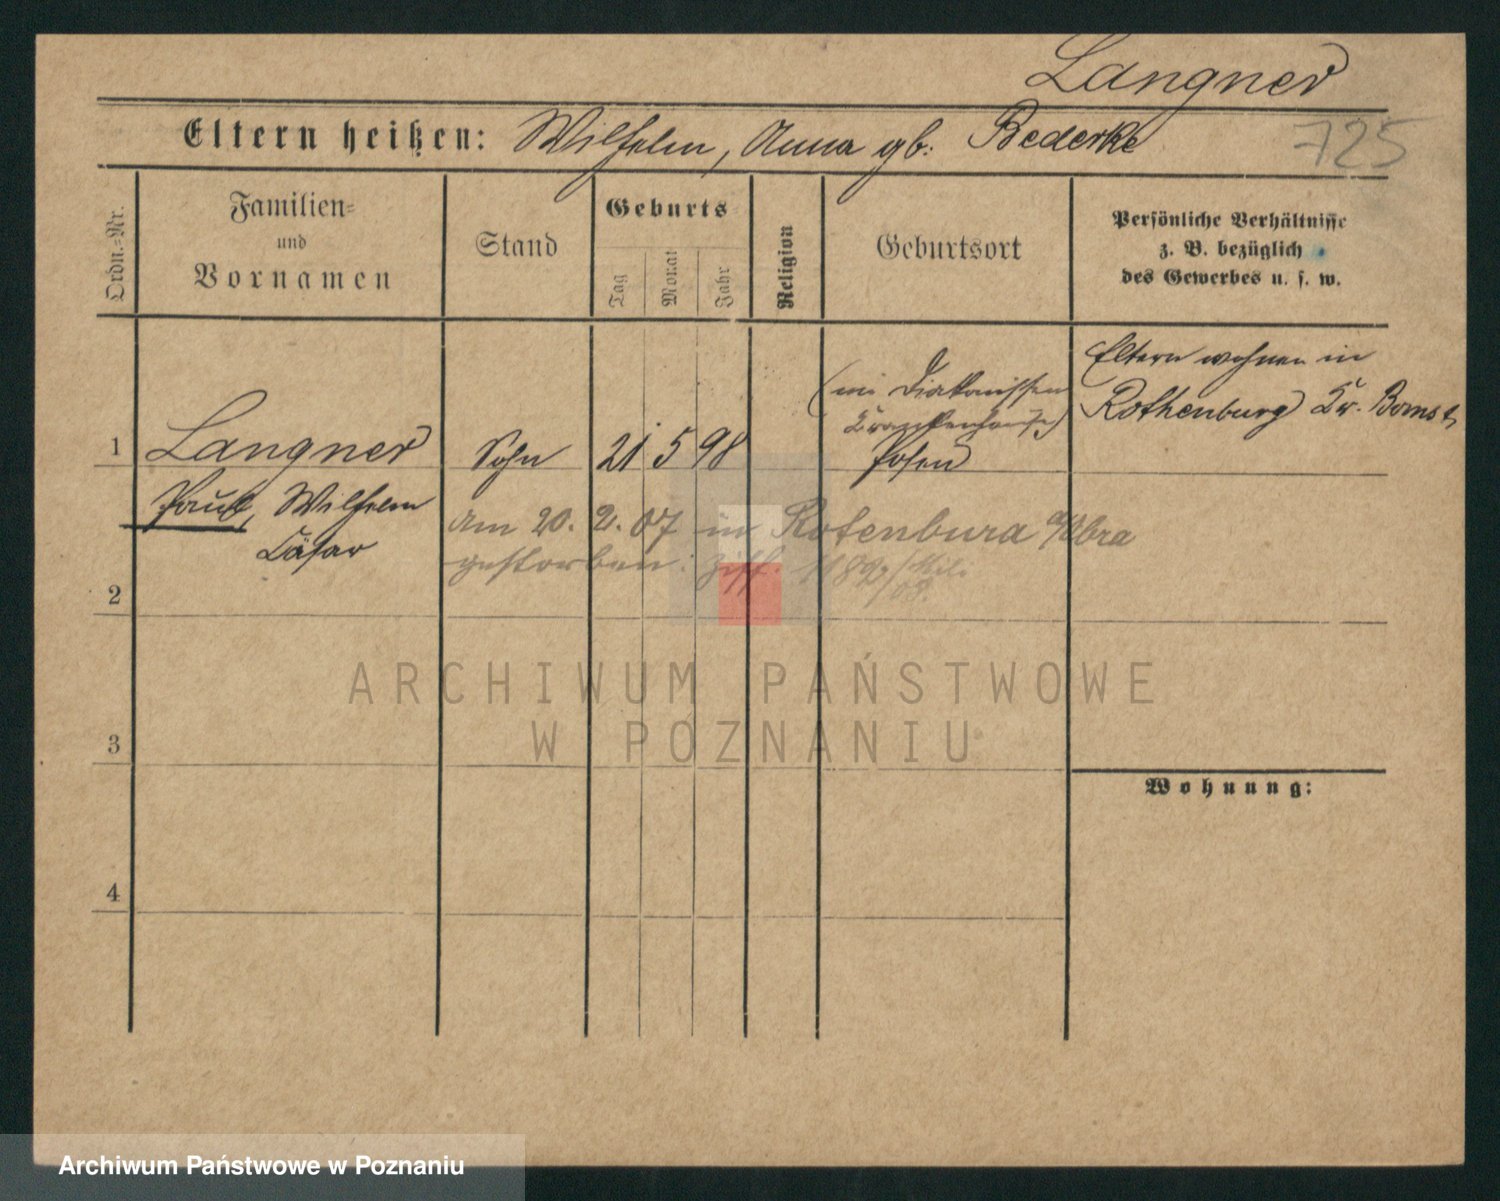 Langner
Eltern heißen: Wilhelm, Anna gb. Bederke
725
Ordn.=Nr.
Familien=
und
Vornamen
Stand
Geburts
Tag
Monat
Jahr
Religion
Geburtsort
Persönliche Verhältnisse
z. B. bezüglich
des Gewerbes u. s. w.
1
Langner
Sohn
21
5
98
(im Diakonissen
Krankenhause)
Posen
Eltern wohnen in
Rothenburg Kr. Bomst
Paul, Wilhelm
Cäsar
am 20. 2. 07 in Rotenburg a/Obra
gestorben. Ziff.
2
3
4
Wohnung:
ARCHIWUM PAŃSTWOWE
W POZNANIU
Archiwum Państwowe w Poznaniu